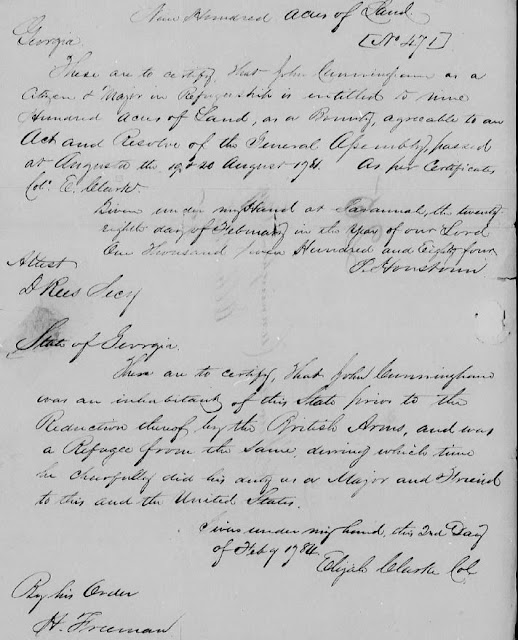 Nine Hundred Acres of Land
Georgia. [No 471]
These are to certify, that John Cunningham as a
Citizen & Major in Refugeship is entitled to nine
Hundred Acres of Land, as a Bounty, agreeable to an
Act and Resolve of the General Assembly, passed
at Augusta the 19 & 20 August 1781. As per Certificate
Col. E. Clarke
Given under my Hand at Savannah, the twenty
eighth day of February in the Year of our Lord
One Thousand Seven Hundred and Eighty four
Attest J. Houstoun
D Rees Secy
State of Georgia.
These are to certify, that John Cunningham
was an inhabitant of this State prior to the
Reduction thereof by the British Arms, and was
a Refugee from the Same, during which time
he chearfully did his duty as a Major and Friend
to this and the United States.
Given under my hand, this 2nd Day
of Feby 1784
Elijah Clarke Col.
By his Order
H. Freeman